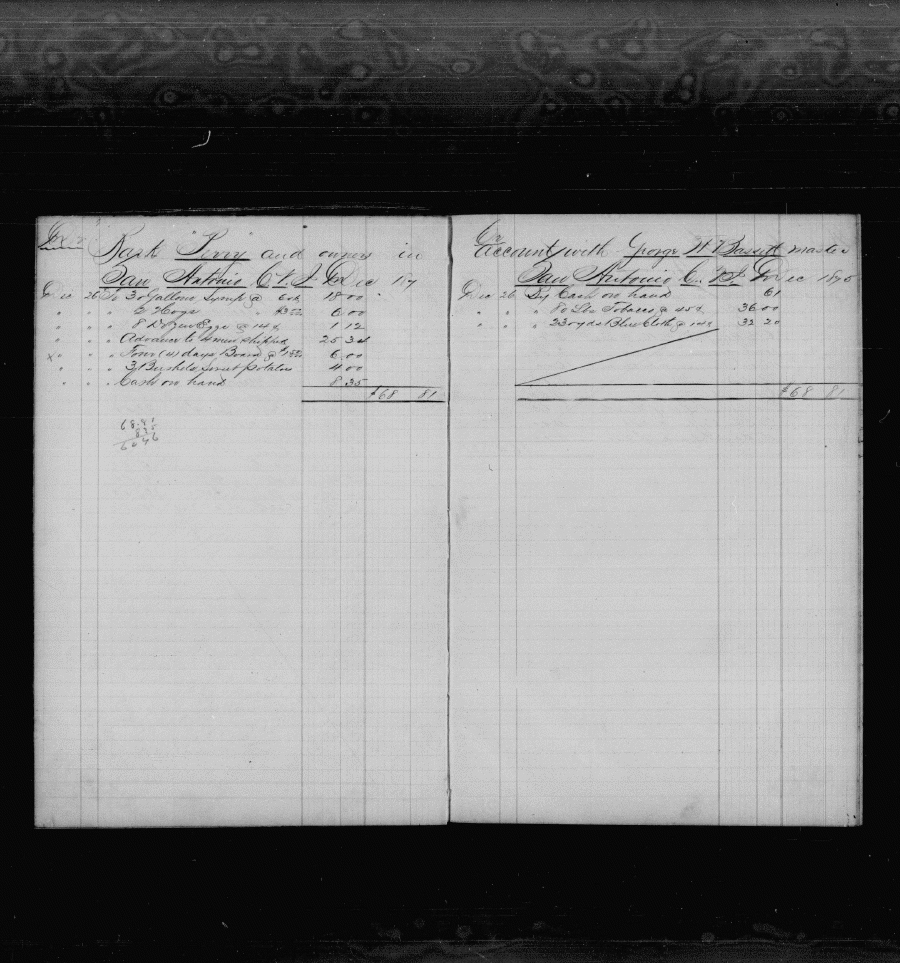 Dr
Bark "Perry" and owners in
San Antonio C. V. I. Dec 189
Dec 26 To 30 Gallons Syrup @ 60¢ 18 00
" " " 2 Hogs " $3.00 6 00
" " " 8 Dozen Eggs @ 14¢ 1 12
" " " Advance to 4 men shipped 25 34
x " " " Four (4) days Board @ $1.50 6 00
" " " 3 Bushels Sweet Potatoes 4 00
" " " Cash on hand 8 35
$68 81
68.81
8 35
60 46
Cr
account with George H. Bassett master
San Antonio C. V. I. Dec 1895
Dec 26 By Cash on hand 61
" " " 80 Lbs Tobacco @ 45¢ 36 00
" " " 230 yds Blue Cloth @ 14¢ 32 20
$68 81